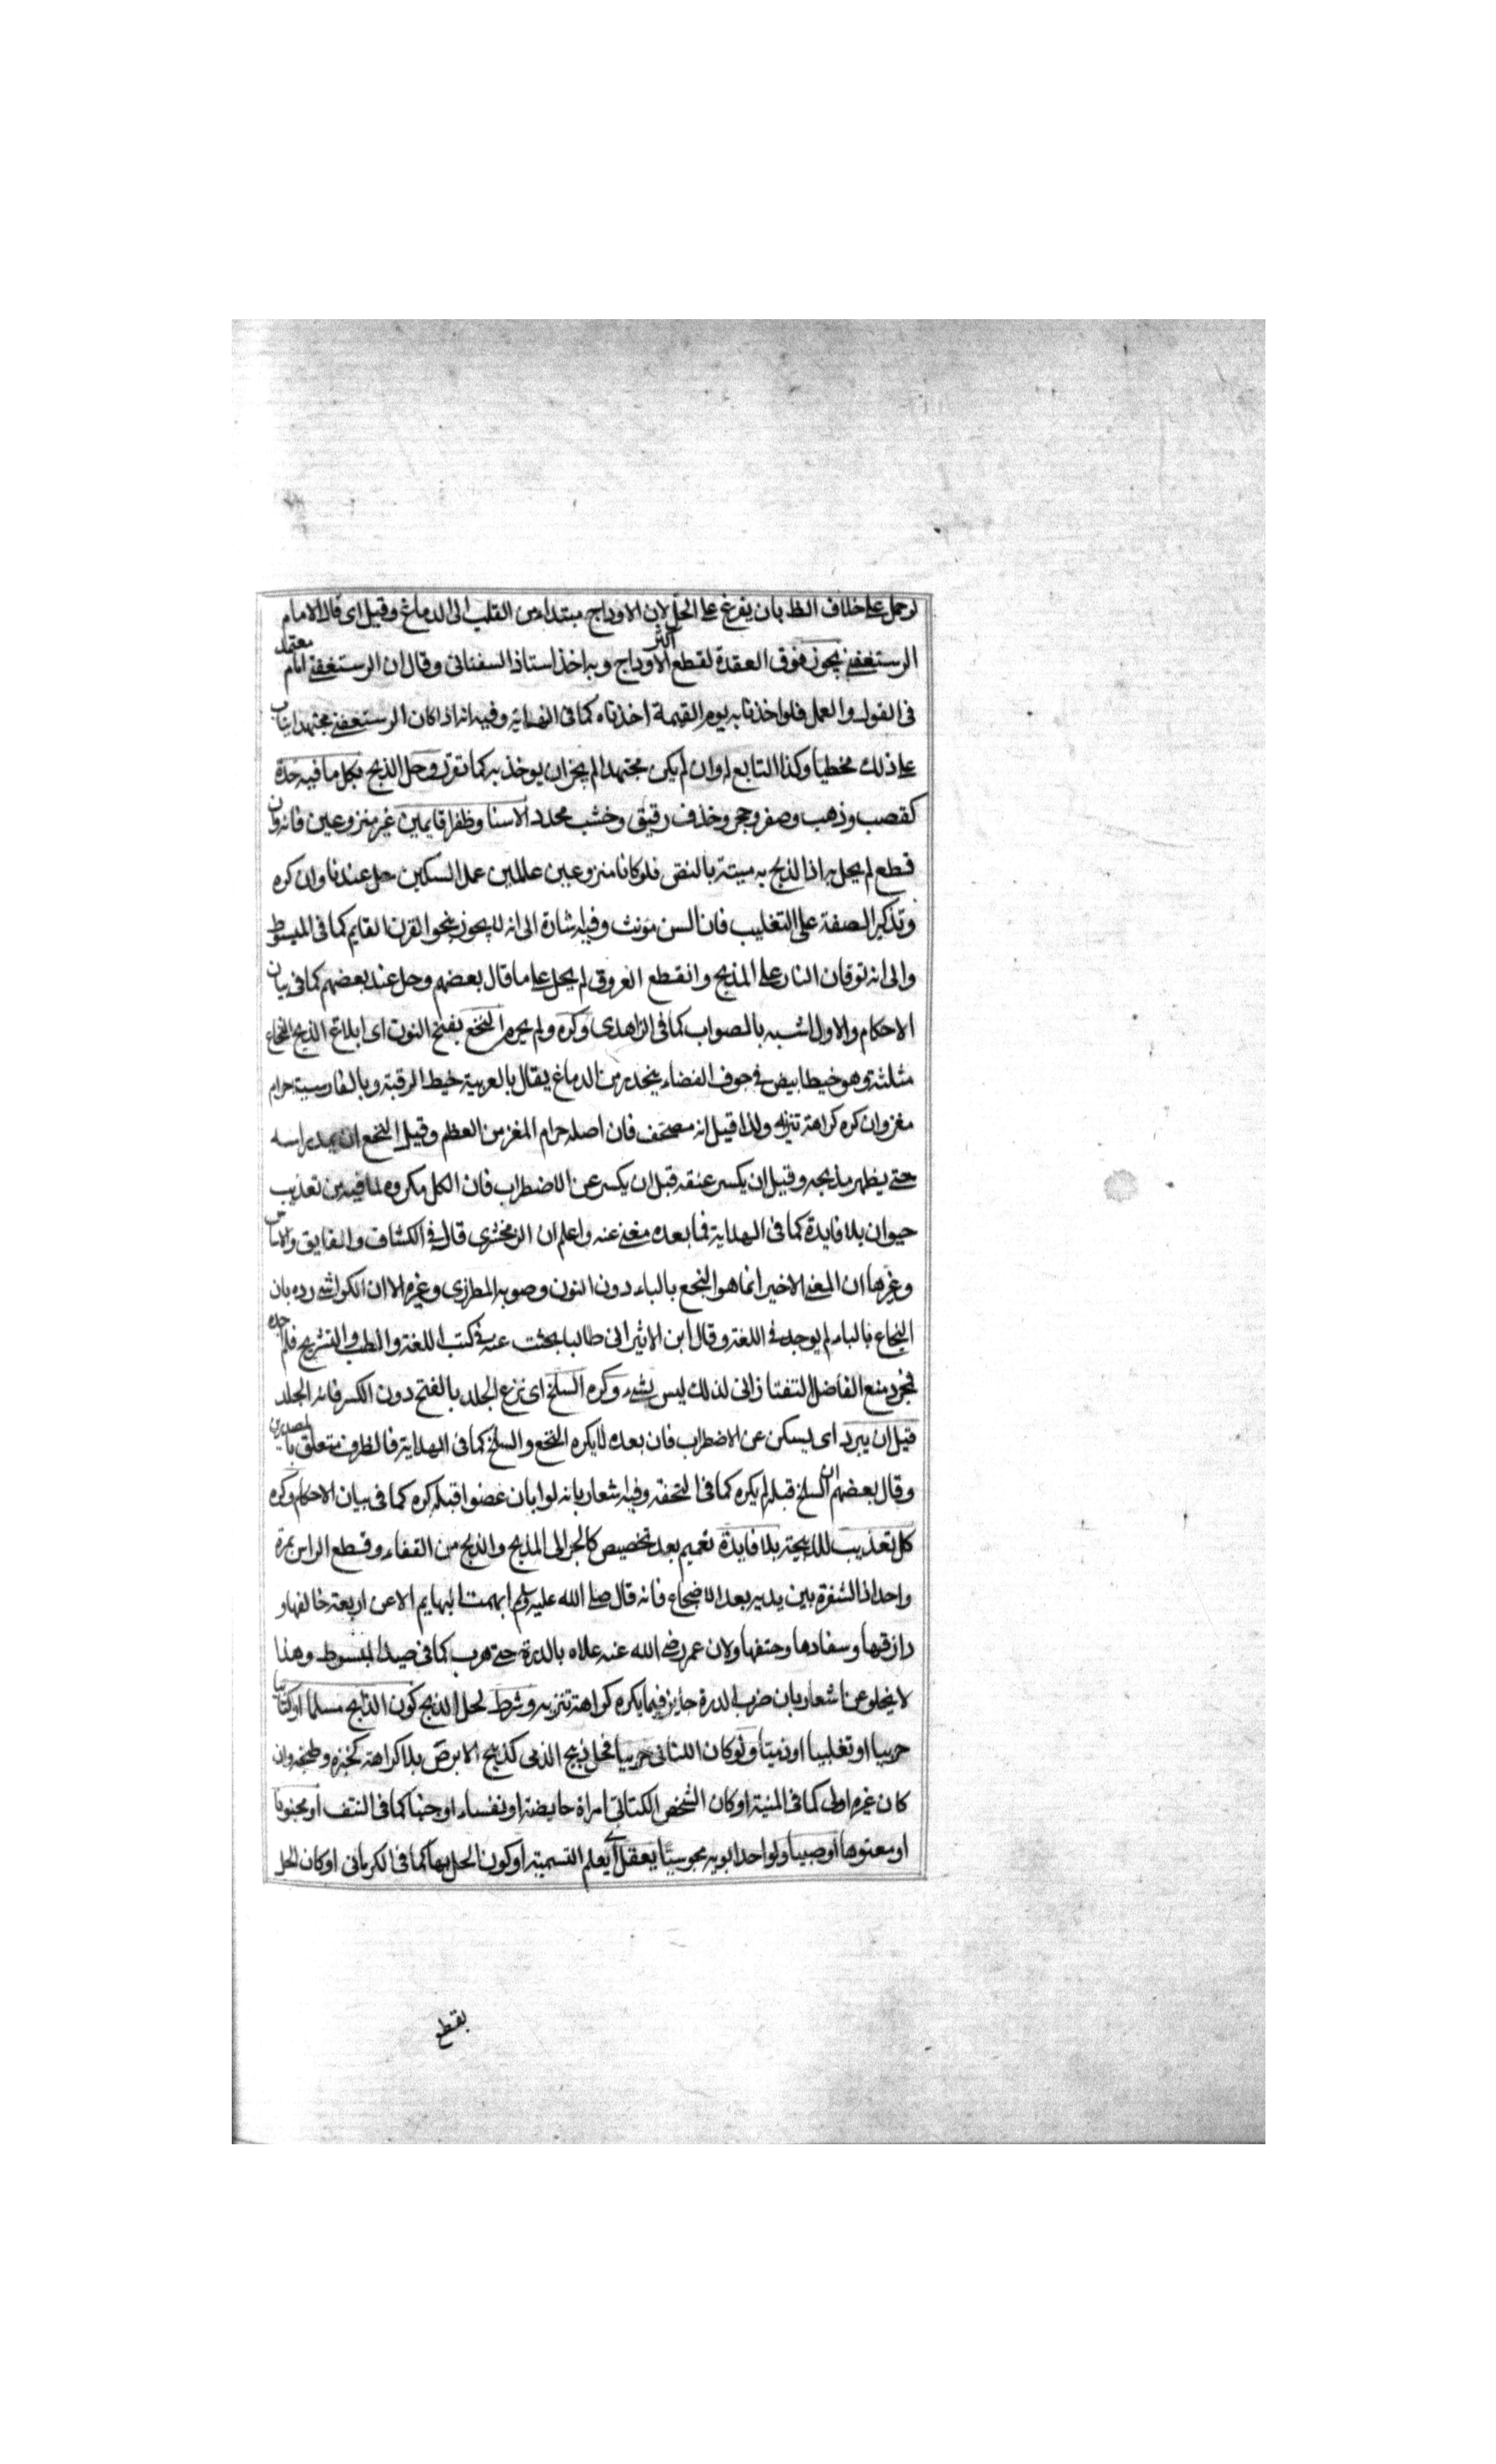 لو حمل على خلاف الظ بان يفرغ على الحل لان الاوداج مبتداء من القلب الى الدماغ وقيل اى قال الامام
الرستغفنى يجوز فوق العقدة لقطع اكثر الاوداج وبه اخذ استاذ السغناقى وقال ان الرستغفنى امام معتمد
فى القول والعمل فلو اخذنا به يوم القيمة اخذناه كما فى النهاية وفيه انه اذا كان الرستغفنى مجتهدا يثاب
على ذلك مخطيا وكذا التابع له وان لم يكن مجتهدا لم يجز ان يوخذ به كما تقرر وحل الذبح بكل ما فيه حدة
كقصب وذهب وصفر وحجر وخذف رقيق وخشب محدد الا سنا وظفرا قايمين غير منزوعين فانه وان
قطع لم يحل به اذ الذبح به ميتة بالنص فلو كانا منزوعين عاملين عمل السكين حل عندنا وان كره
وتذكير الصفة على التغليب فان السن مونث وفيه اشارة الى انه لا يجوز بنحو القرن القايم كما فى المبسوط
والى انه توقان النار على المذبح وانقطع العروق لم يحل على ما قال بعضهم وحل عند بعضهم كما فى بيان
الاحكام والاول اشبه بالصواب كما فى الزاهدى وكره ولم يحرم النخع بفتح النون اى ابلاغ الذبح النخاع
مثلثة وهو خيط ابيض فى جوف الفضاء ينحدر من الدماغ يقال بالعربية خيط الرقبة وبالفارسية حرام
مغز وان كره كراهة تنزيه ولذا قيل انه مصحف فان اصله حرام المغز من العظم وقيل النخع ان يمد راسه
حتى يظهر مذبحه وقيل ان يكسر عنقه قبل ان يكسر عن الاضطراب فان الكل مكروه لما فيه من تعذيب
حيوان بلا فايدة كما فى الهداية فما بعده مغنى عنه واعلم ان الزمخشرى قال فى الكشاف والفايق والاساس
وغيرها ان المعنى الاخير انما هو البخع بالباء دون النون وصوبه المطرزى وغيره الا ان الكواشى رده بان
البخاع بالباء لم يوجد فى اللغة وقال ابن الاثير انى طالبا بحثت عنه فى كتب اللغة والطب والتشريح فلم اجده
فمجرد منع الفاضل التفتازانى لذلك ليس بشىء وكره السلخ اى نزع الجلد بالفتح دون الكسر فانه الجلد
قبل ان يبرد اى يسكن عن الاضطراب فان بعده لا يكره النخع والسلخ كما فى الهداية فالظرف متعلق بالمصدرين
وقال بعضهم ان السلخ قبله لم يكره كما فى التحفة وفيه اشعار بانه لو ابان عضوا قبله كره كما فى بيان الاحكام وكره
كل تعذيب للذبيحة بلا فايدة تعميم بعد تخصيص كالجر الى المذبح والذبح من القفاء وقطع الراس بمرة
واحداد الشفرة بين يديه بعد الاضجاع فانه قال صلى الله عليه وسلم ابهمت البهايم الا عن اربعة خالقها و
رازقها وسفادها وحتفها ولان عمر رضى الله عنه علاه بالدرة حتى هرب كما فى صيد المبسوط وهذا
لا يخلو عن اشعار بان ضرب الدرة جايز فيما يكره كراهة تنزيه وشرط لحل الذبح كون الذابح مسلما او كتابيا
حربيا او تغلبيا او ذميا ولو كان الكتابى حربيا فحل ذبيح الذمى كذبح الابرص بلا كراهة كخبزه وطبخه وان
كان غيره اولى كما فى المنية او كان الشخص الكتابى امراة حايضة او نفساء او جنبا كما فى النتف او مجنونا
او معتوها او صبيا ولو احد ابويه مجوسيا يعقل اى يعلم التسمية او كون الحل بها كما فى الكرمانى او كان الحل
بقطع